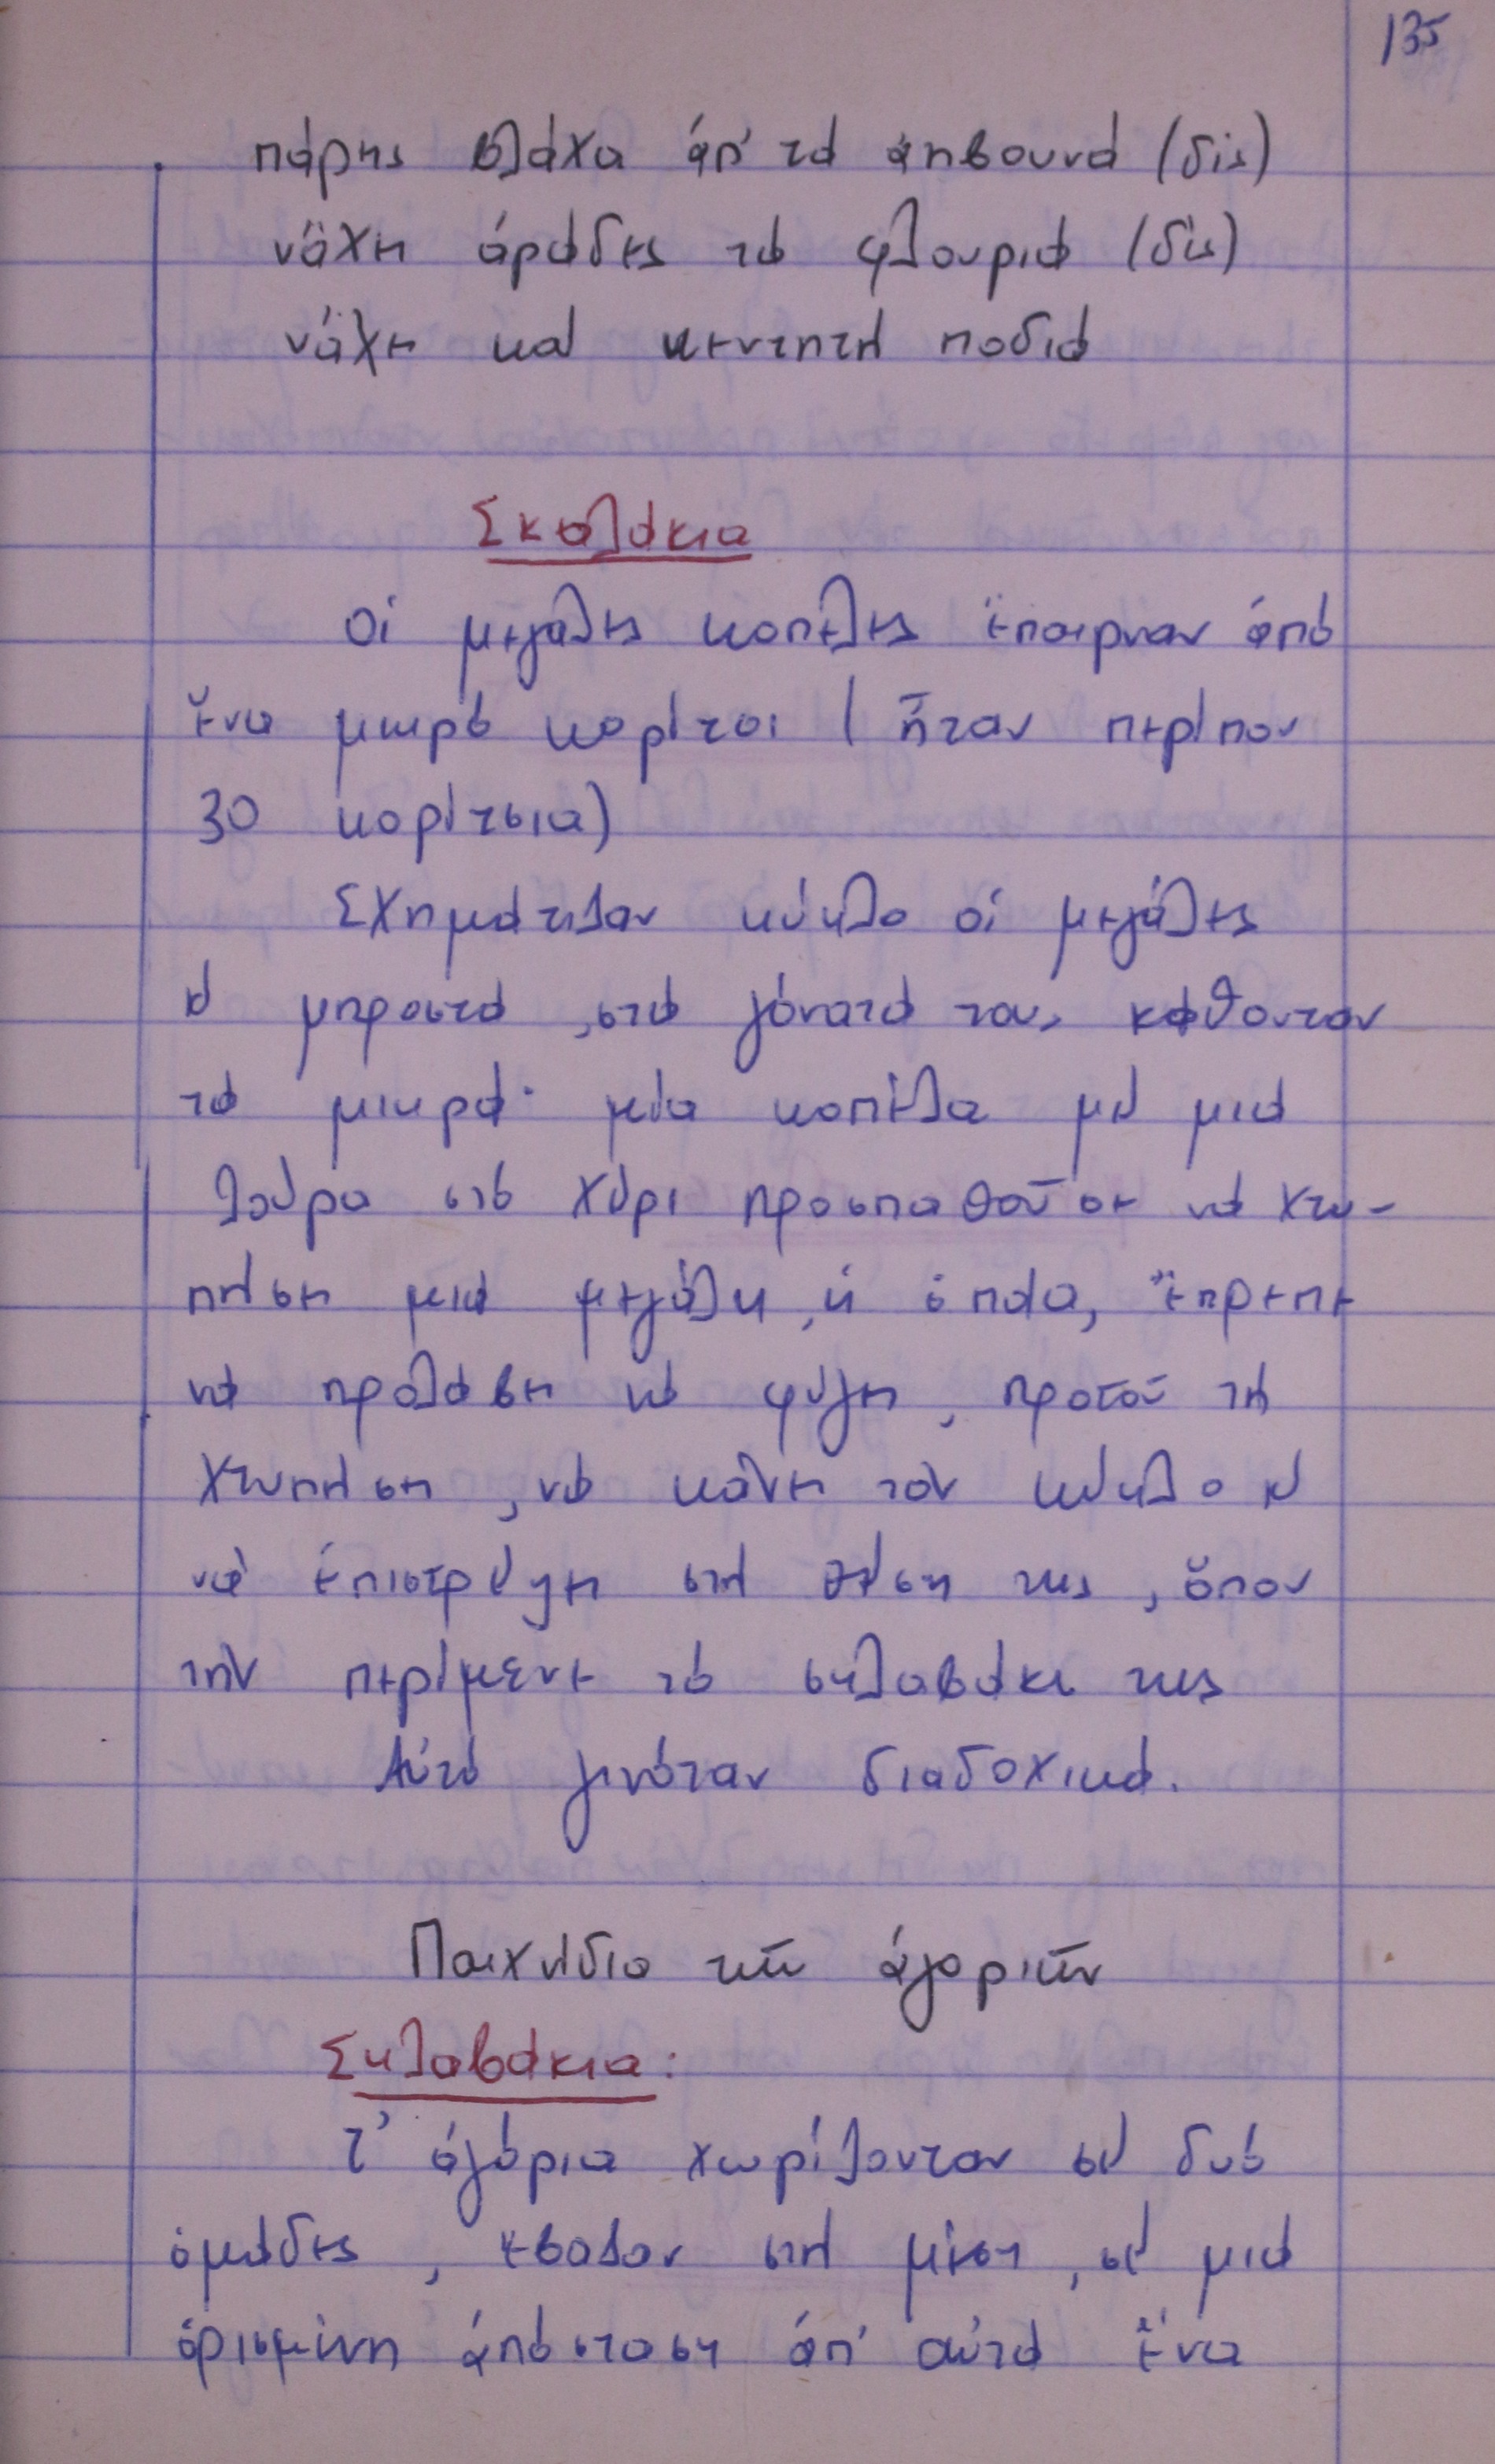 135
πάρης βλάχα ἀπ' τὰ ψηβουνά (δίς)
νἄχη ἀράδες τὰ φλουριά (δίς)
νἄχη καὶ κεντητή ποδιά
Σκαλάκια
Οἱ μεγάλες κοπέλες ἔπαιρναν ἀπό
ἕνα μικρό κορίτσι (ἦταν περίπου
30 κορίτσια)
Σχημάτιζαν κύκλο οἱ μεγάλες
κ μπροστά, στά γόνατά τους καθονταν
τά μικρά· μία κοπέλα μέ μιά
λούρα στό χέρι προσπαθοῦσε νά χτυ-
πήση μιά μεγάλη, ἡ ὁποία, ἔπρεπε
νά προλάβη νά φύγη, προτοῦ τή
χτυπήση, νά κάνη τόν κύκλο κ
νά ἐπιστρέψη στή θέση της, ὅπου
τήν περίμενε τό σκλαβάκι της
Αὐτό γινόταν διαδοχικά.
Παιχνίδια τῶν ἀγοριῶν
Σκλαβάκια:
Τ' ἀγόρια χωρίζονταν σέ δυό
ὁμάδες, ἔβαζαν στή μέση, σέ μιά
ὁρισμένη ἀπόσταση ἀπ' αὐτά ἕνα